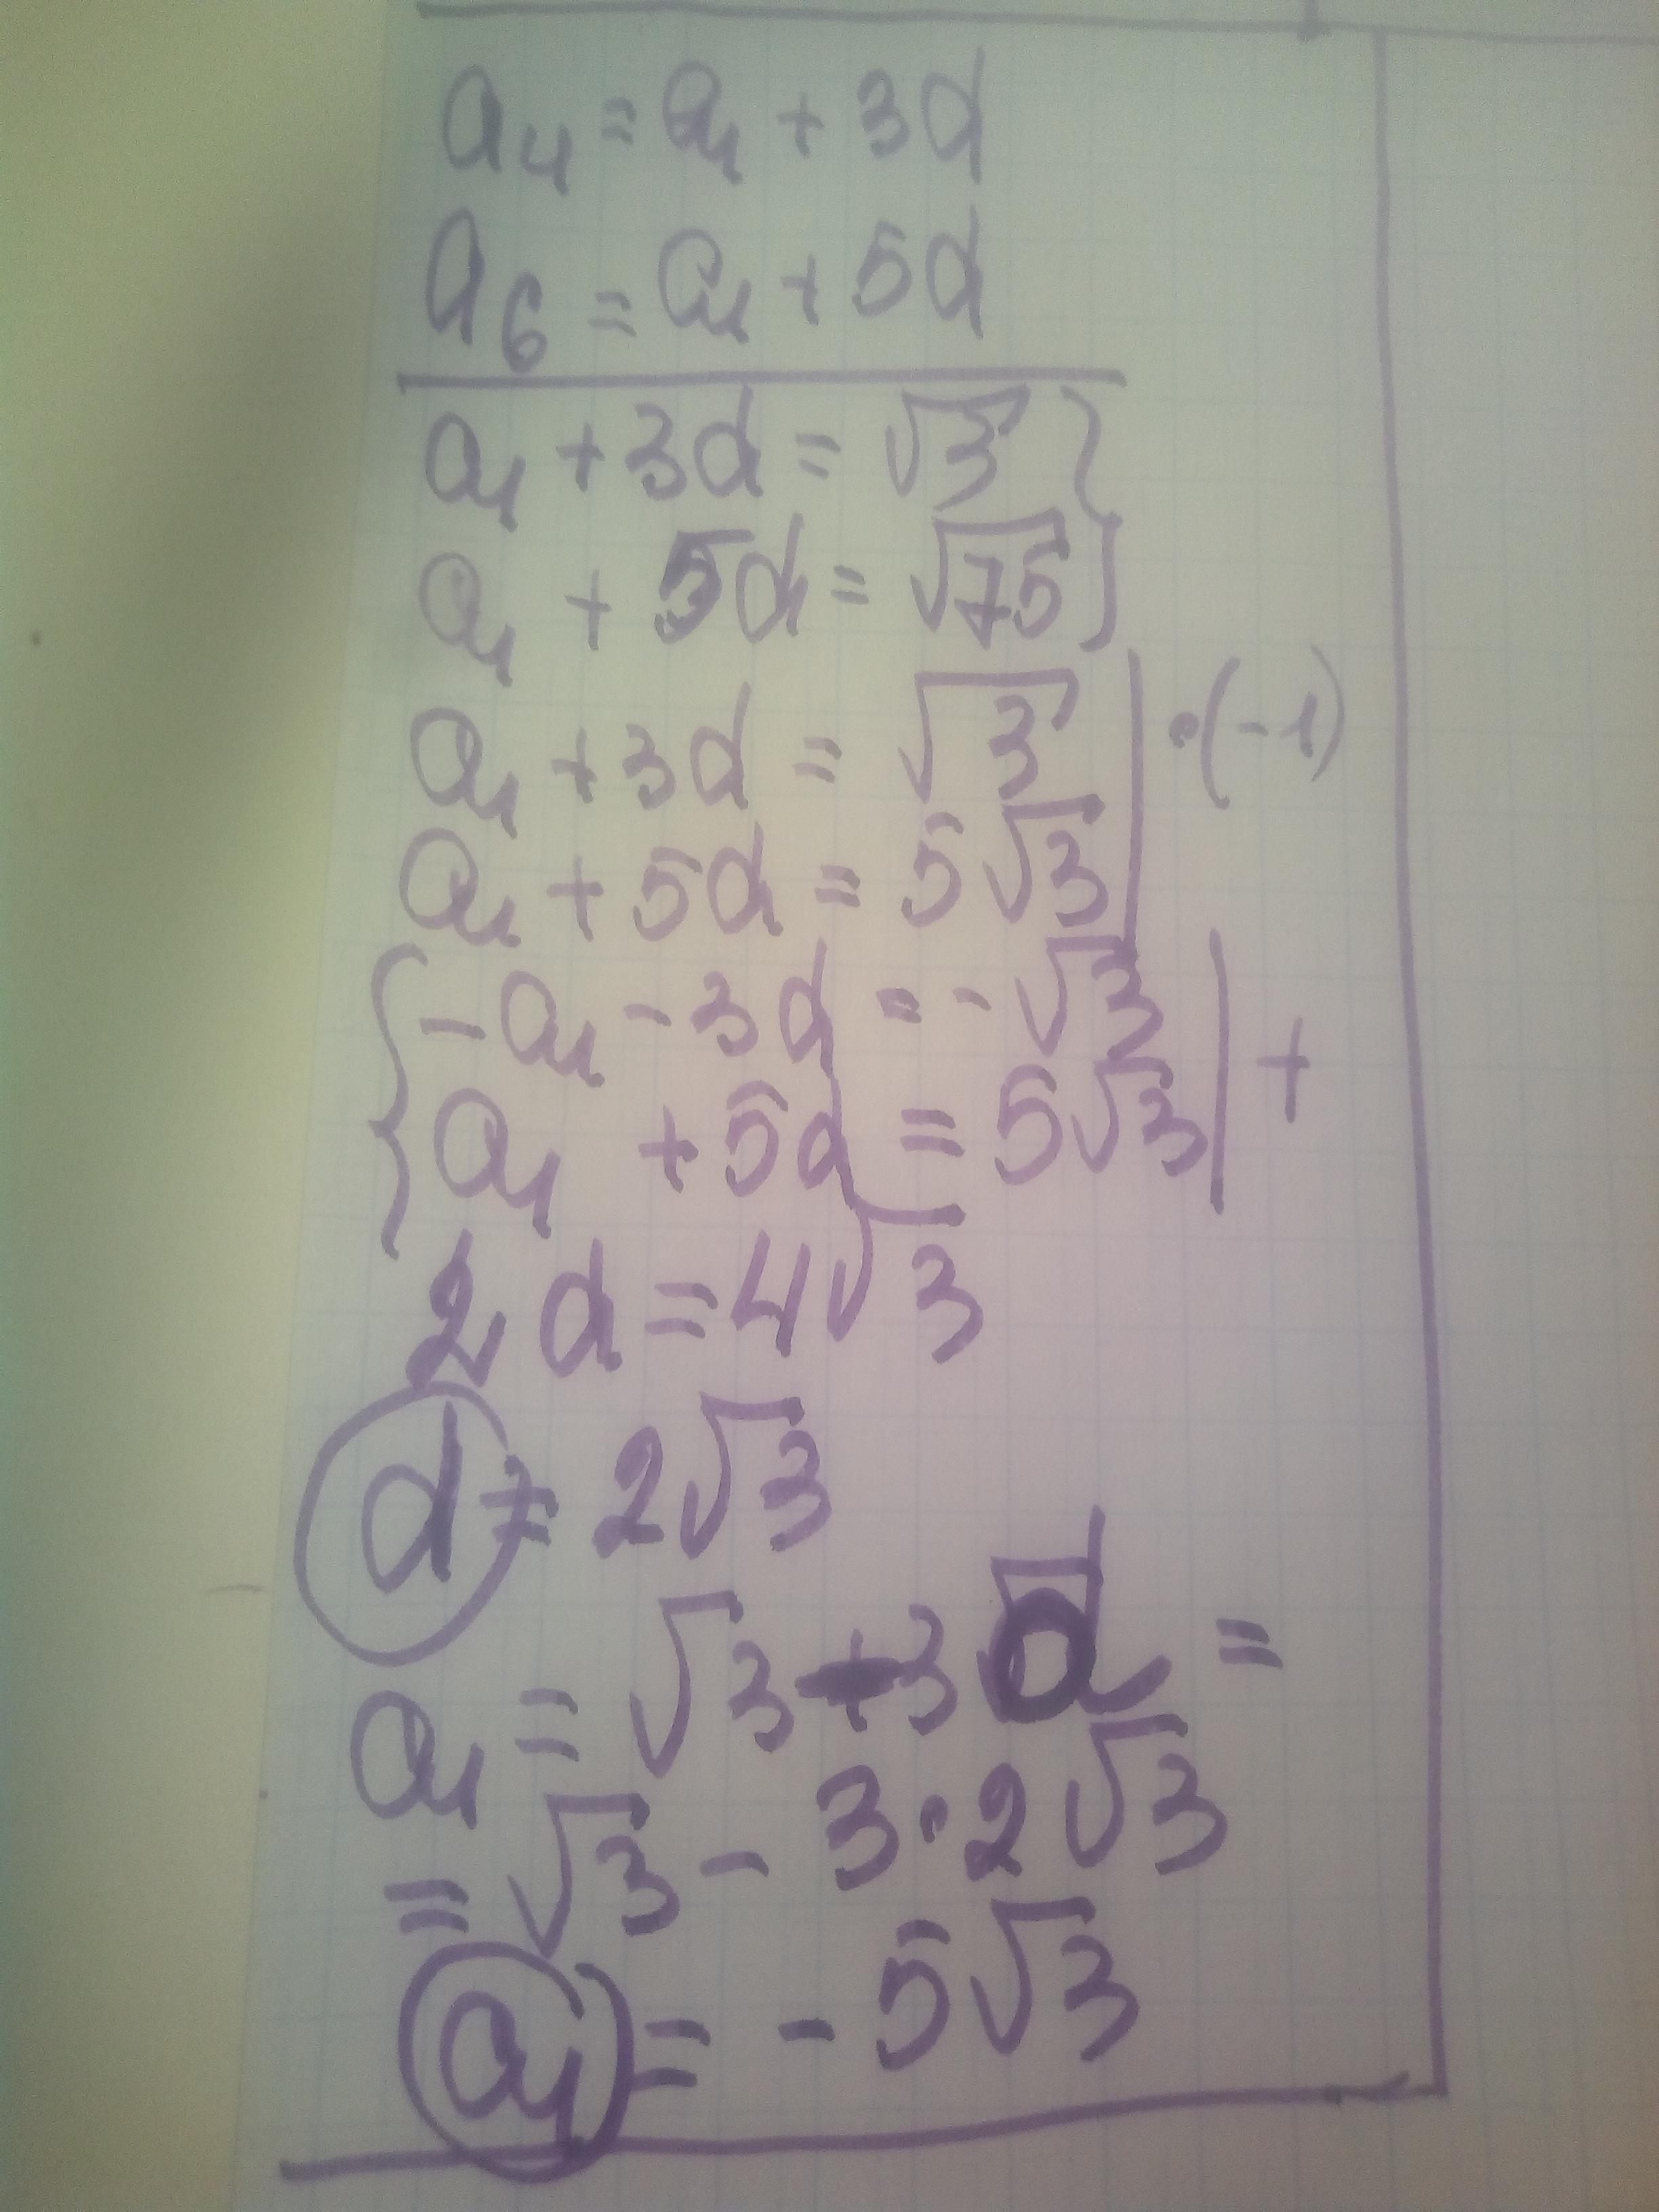 a₄ = a₁ + 3d
a₆ = a₁ + 5d
a₁ + 3d = √3 }
a₁ + 5d = √75 }
a₁ + 3d = √3 | · (-1)
a₁ + 5d = 5√3 |
{ -a₁ - 3d = -√3 | +
{ a₁ + 5d = 5√3 |
2d = 4√3
d = 2√3
a₁ = √3 - 3d =
= √3 - 3 · 2√3
a₁ = -5√3